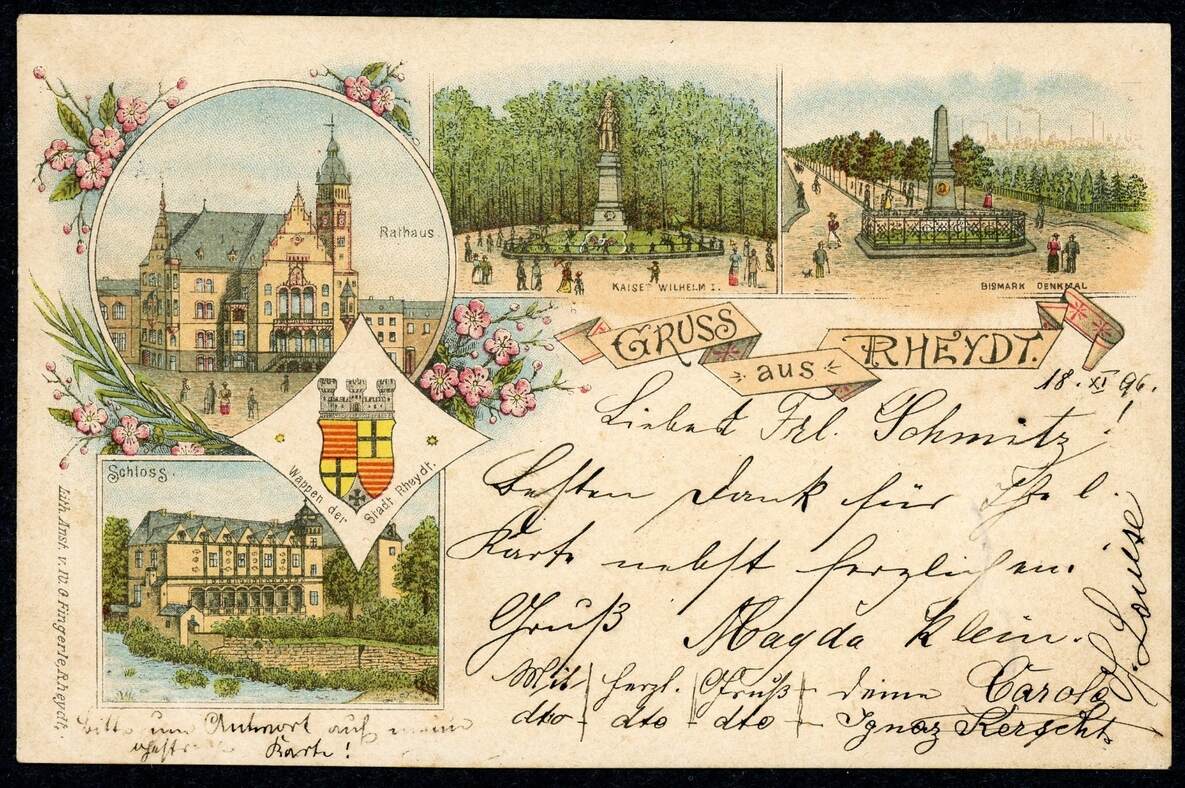 Rathaus.
KAISER WILHELM I.
BISMARK DENKMAL
GRUSS
aus
RHEYDT.
Schloss.
Wappen der Stadt Rheydt.
Lith. Anst. v. W. O. Fingerle, Rheydt.
18. XI 96.
Liebes Frl. Schmitz!
Besten Dank für Ihre l.
Karte nebst herzlichen
Gruß Magda Klein.
Mit herzl. Gruß deine Carola
dto dto dto Ignaz
Louise
Bitte um Antwort auf meine
Karte!